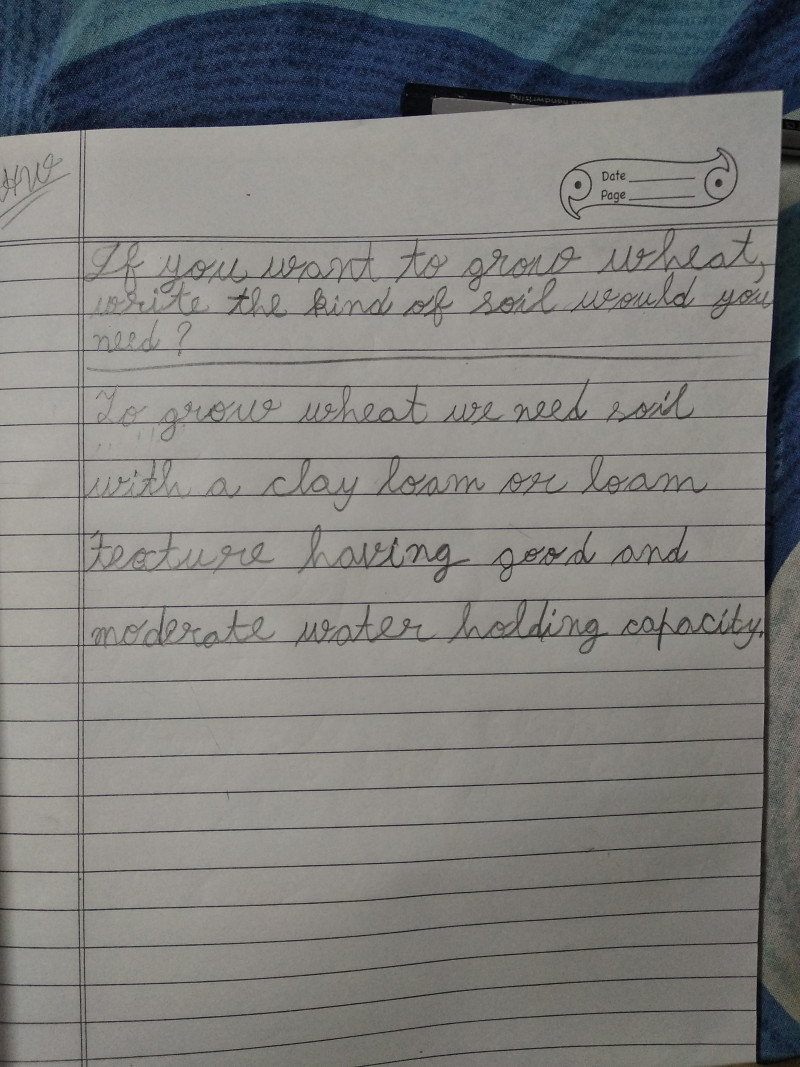 HW
Date
Page
If you want to grow wheat,
write the kind of soil would you
need?
To grow wheat we need soil
with a clay loam or loam
texture having good and
moderate water holding capacity.